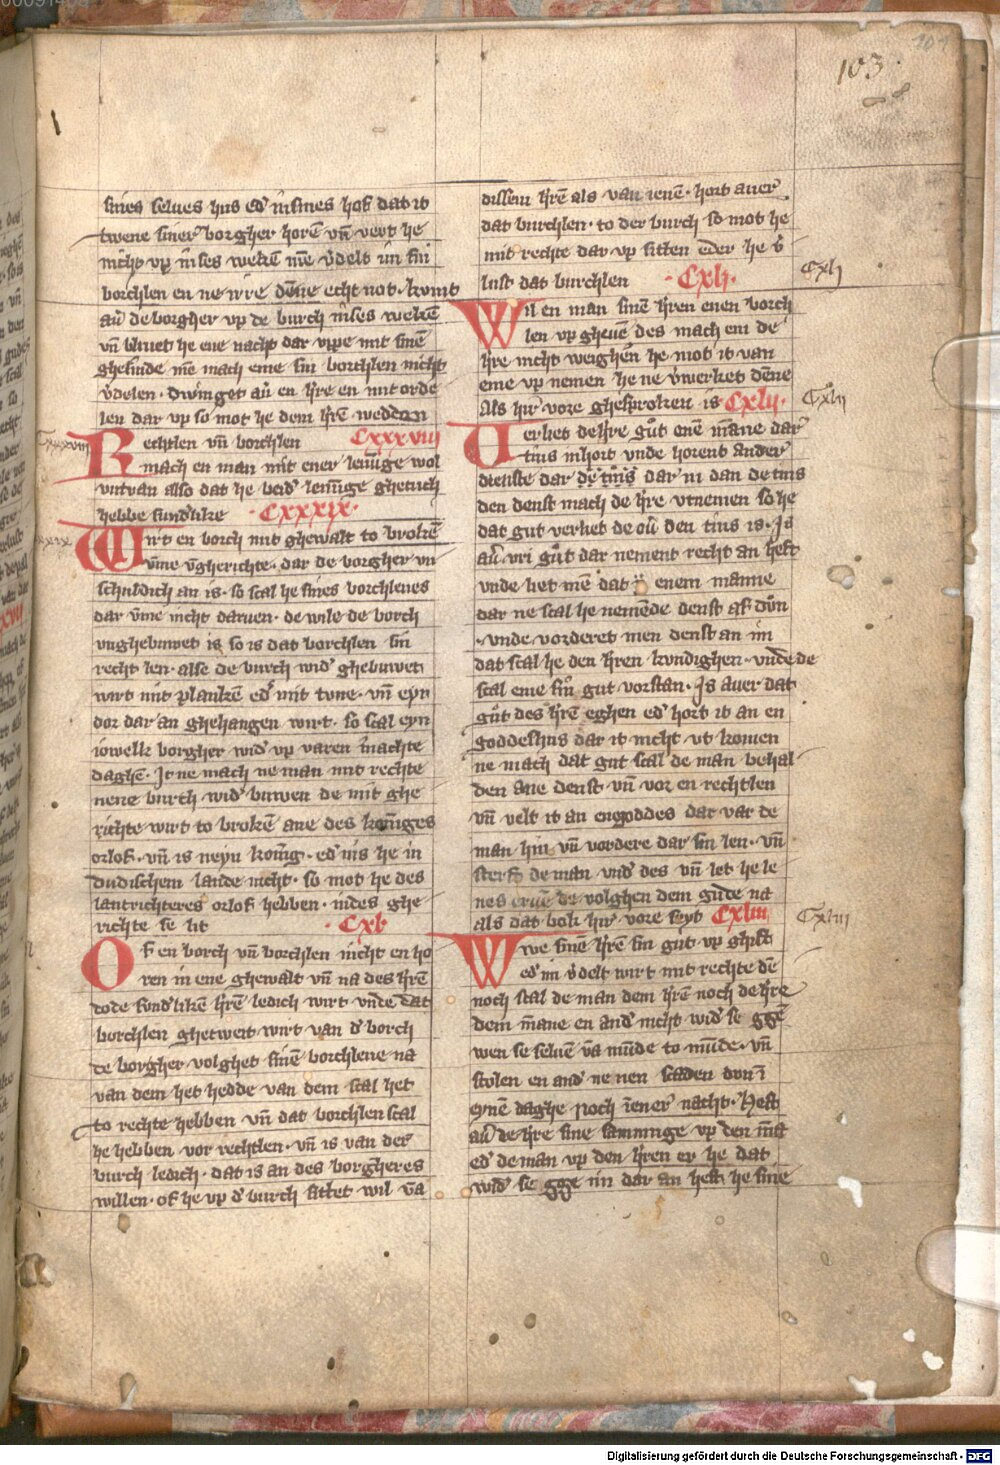 103
sines selues hus edͤ in sines hof dat it
twene siner borgher horē vn̄ vert he
nicht vp in ses wekē mē v̄delt im sin
borchlen en ne irre dēne echt not. kumt
auͤ de borgher vp de burch in ses wekē
vn̄ bliuet he ene nacht dar vppe mit sinē
ghesinde mē mach eme sin borchlen nicht
v̄delen. dwinget auͤ en h're en mit orde
len dar vp so mot he dem h'rē wedden
Rechtlen vn̄ borchlen Cxxxviii
mach en man mit ener lenūge wol
vntvan also dat he beidͤ lenūge ghetuch
hebbe sundͤlike Cxxxix.
Wirt en borch mit ghewalt to brokē
v̄me v̄gherichte. dar de borgher vn
schuldich an is. so scal he sines borchlenes
dar v̄me nicht daruen. de wile de borch
vnghebuwet is so is dat borchlen sin
recht len. alse de burch widͤ ghebuwet
wirt mit plankē edͤ mit tune. vn̄ eyn
dor dar an ghehangen wirt. so scal eyn
iowelk borgher widͤ vp varen in achte
daghē. It ne mach ne man mit rechte
nene burch widͤ buwen de mit ghe
richte wirt to brokē ane des koniges
orlof. vn̄ is neyn konīg. edͤ nis he in
dudischem lande nicht. so mot he des
lantrichteres orlof hebben. in des ghe
richte se lit Cxl
Of en borch vn̄ borchlen nicht en ho
ren in ene ghewalt vn̄ na des h'rē
dode sundͤlikē h'rē ledich wirt vnde dat
borchlen ghetweit wirt van dͤ borch
de borgher volghet sinē borchlene na
van dem het hedde van dem scal het
to rechte hebben vn̄ dat borchlen scal
he hebben vor rechtlen. vn̄ is van der
burch ledich. dat is an des borgheres
willen. of he vp dͤ burch sittet wil vā
dissem h'rē als van ienē. hort auer
dat burchlen. to der burch so mot he
mit rechte dar vp sitten eder he v̄
lust dat burchlen Cxli.
Cxli
Wil en man sinē h'ren enen borch
len vp gheuē des mach em de
h're nicht weighen he mot it van
eme vp nemen he ne v̄werket dēne
Als hir vore ghesproken is Cxlii.
Cxlii
Verliet de h're gut enē māne dar
tins in hort vnde horent ander
dienste dar dͤ tins dar in dan de tins
den denst mach de h're vtnemen so he
dat gut verliet de ouͤ den tins is. Is
auͤ vri gut dar nement recht an heft
vnde liet mē dat enem manne
dar ne scal he nemēde denst af dūn
vnde vorderet men denst an im
dat scal he den h'ren kundighen. vnde de
scal eme sin gut vorstan. Is auer dat
gut des h'rē eghen edͤ hort it an en
goddeshus dar it nicht vt komen
ne mach dat gut scal de man behal
den ane denst vn̄ vor en rechtlen
vn̄ velt it an en goddes dar var de
man hin vn̄ vordere dar sin len. vn̄
sterft de man vndͤ des vn̄ let he le
nes eruē de volghen dem gude na
als dat bok hir vore seyt Cxliii
Cxliii
Wwe sinē h'rē sin gut vp ghift
edͤ im v̄delt wirt mit rechte dē
noch scal de man dem h'rē noch de h're
dem māne en andͤ nicht widͤ se ggē
wen se seluē vā mūde to mūde. vn̄
scolen en andͤ ne nen scaden don ī
eynē daghe noch ī ener nacht. Heft
auͤ de h're sine samninge vp den mā
edͤ de man vp den h'ren er he dat
widͤ se gge im dar an heft he sine
Digitalisierung gefördert durch die Deutsche Forschungsgemeinschaft - DFG